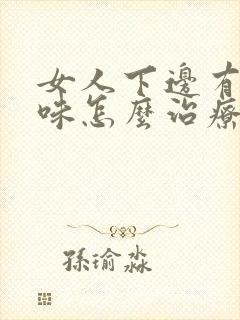 女人下邊有
味怎麼治療
孫瑜淼